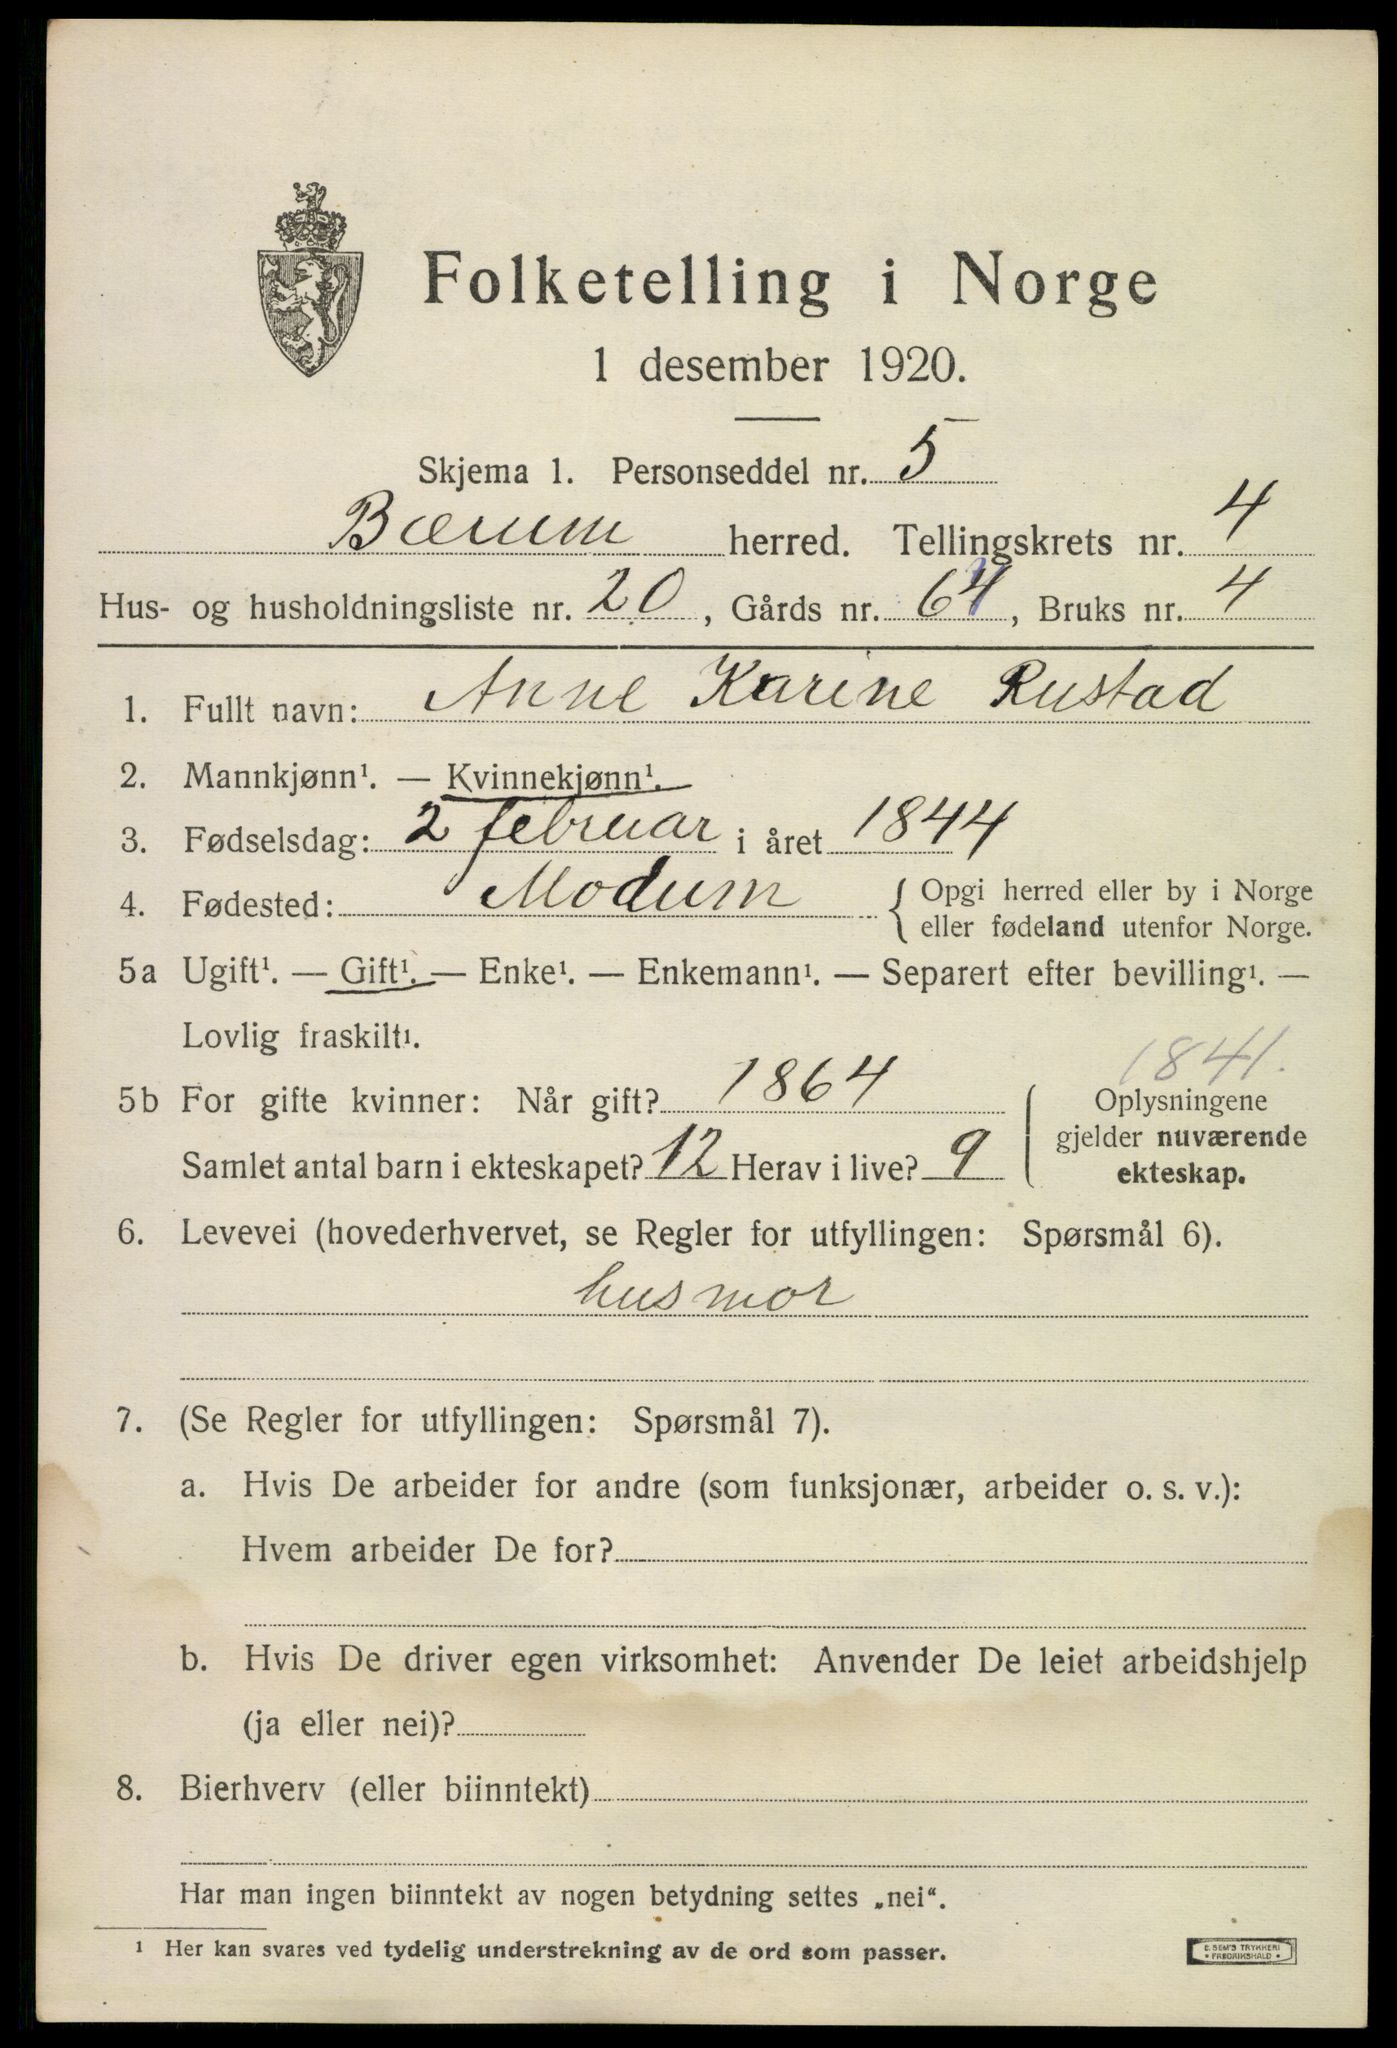 Folketelling i Norge
1 desember 1920.
Skjema 1. Personseddel nr. 5
Bærum herred. Tellingskrets nr. 4
Hus- og husholdningsliste nr. 20, Gårds nr. 64, Bruks nr. 4
1. Fullt navn: Anne Karine Rustad
2. Mannkjønn¹. — Kvinnekjønn¹.
3. Fødselsdag: 2 februar i året 1844
4. Fødested: Modum { Opgi herred eller by i Norge
eller fødeland utenfor Norge.
5a Ugift¹. — Gift¹. — Enke¹. — Enkemann¹. — Separert efter bevilling¹. —
Lovlig fraskilt¹.
1841.
5b For gifte kvinner: Når gift? 1864 { Oplysningene
gjelder nuværende
Samlet antal barn i ekteskapet? 12 Herav i live? 9
ekteskap.
6. Levevei (hovederhvervet, se Regler for utfyllingen: Spørsmål 6).
husmor
7. (Se Regler for utfyllingen: Spørsmål 7).
a. Hvis De arbeider for andre (som funksjonær, arbeider o. s. v.):
Hvem arbeider De for?
b. Hvis De driver egen virksomhet: Anvender De leiet arbeidshjelp
(ja eller nei)?
8. Bierhverv (eller biinntekt)
Har man ingen biinntekt av nogen betydning settes „nei“.
¹ Her kan svares ved tydelig understrekning av de ord som passer.
E. SEM'S TRYKKERI
• FREDRIKSHALD •